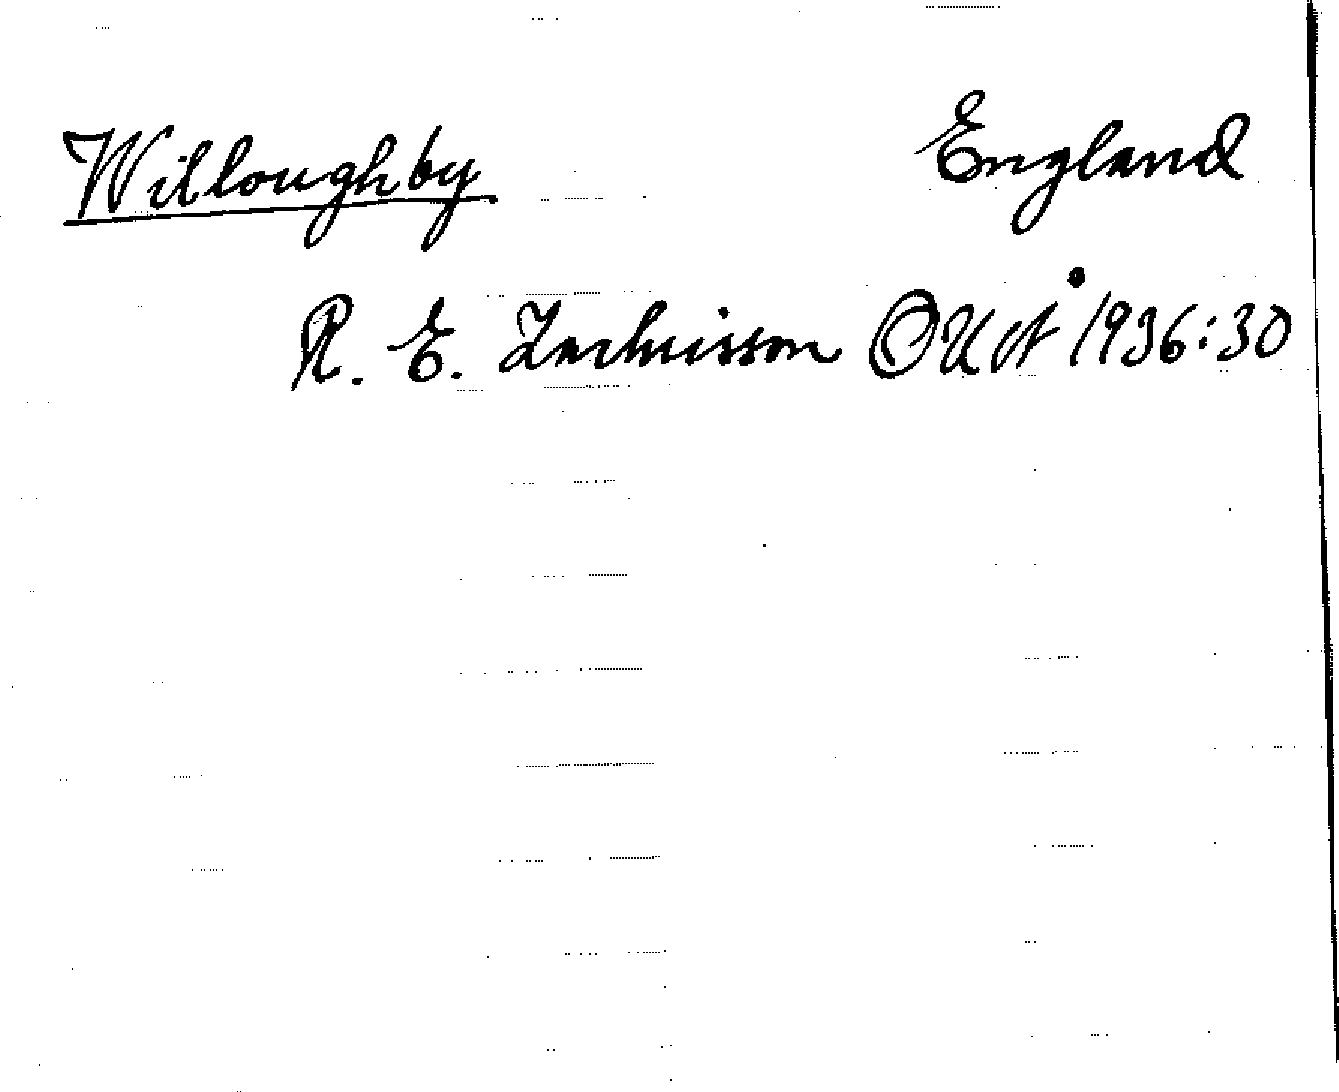 Willoughby England
R. E. Zachrisson OUÅ 1936:30